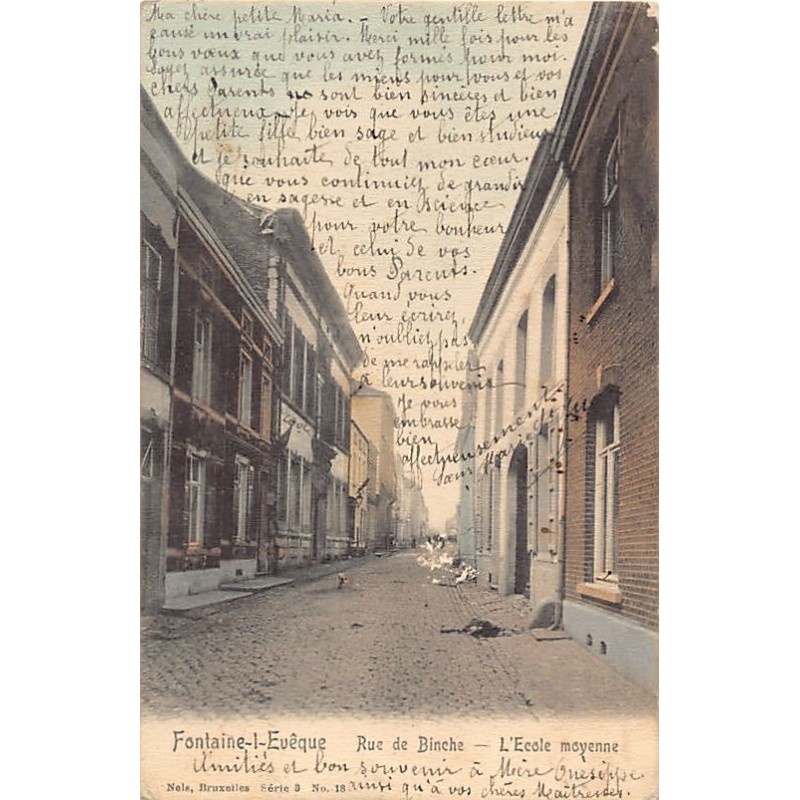 Ma chère petite Maria. - Votre gentille lettre m'a
causé un vrai plaisir. Merci mille fois pour les
bons vœux que vous avez formés pour moi.
Soyez assurée que les miens pour vous et vos
chers Parents ne sont bien sincères et bien
affectueux. Je vois que vous êtes une
petite fille bien sage et bien studieuse
et je souhaite de tout mon cœur.
que vous continuiez de grandir
en sagesse et en science
pour votre bonheur
et celui de vos
bons Parents.
Quand vous
leur écrirez,
n'oubliez pas
de me rappeler
à leur souvenir
Je vous
embrasse
bien
affectueusement
Sœur Marie
Fontaine-l-Evêque Rue de Binche — L'Ecole moyenne
Amitiés et bon souvenir à Mère Onésippe
Nels, Bruxelles Série 3 No. 18 ainsi qu'à vos chères Maîtresses.